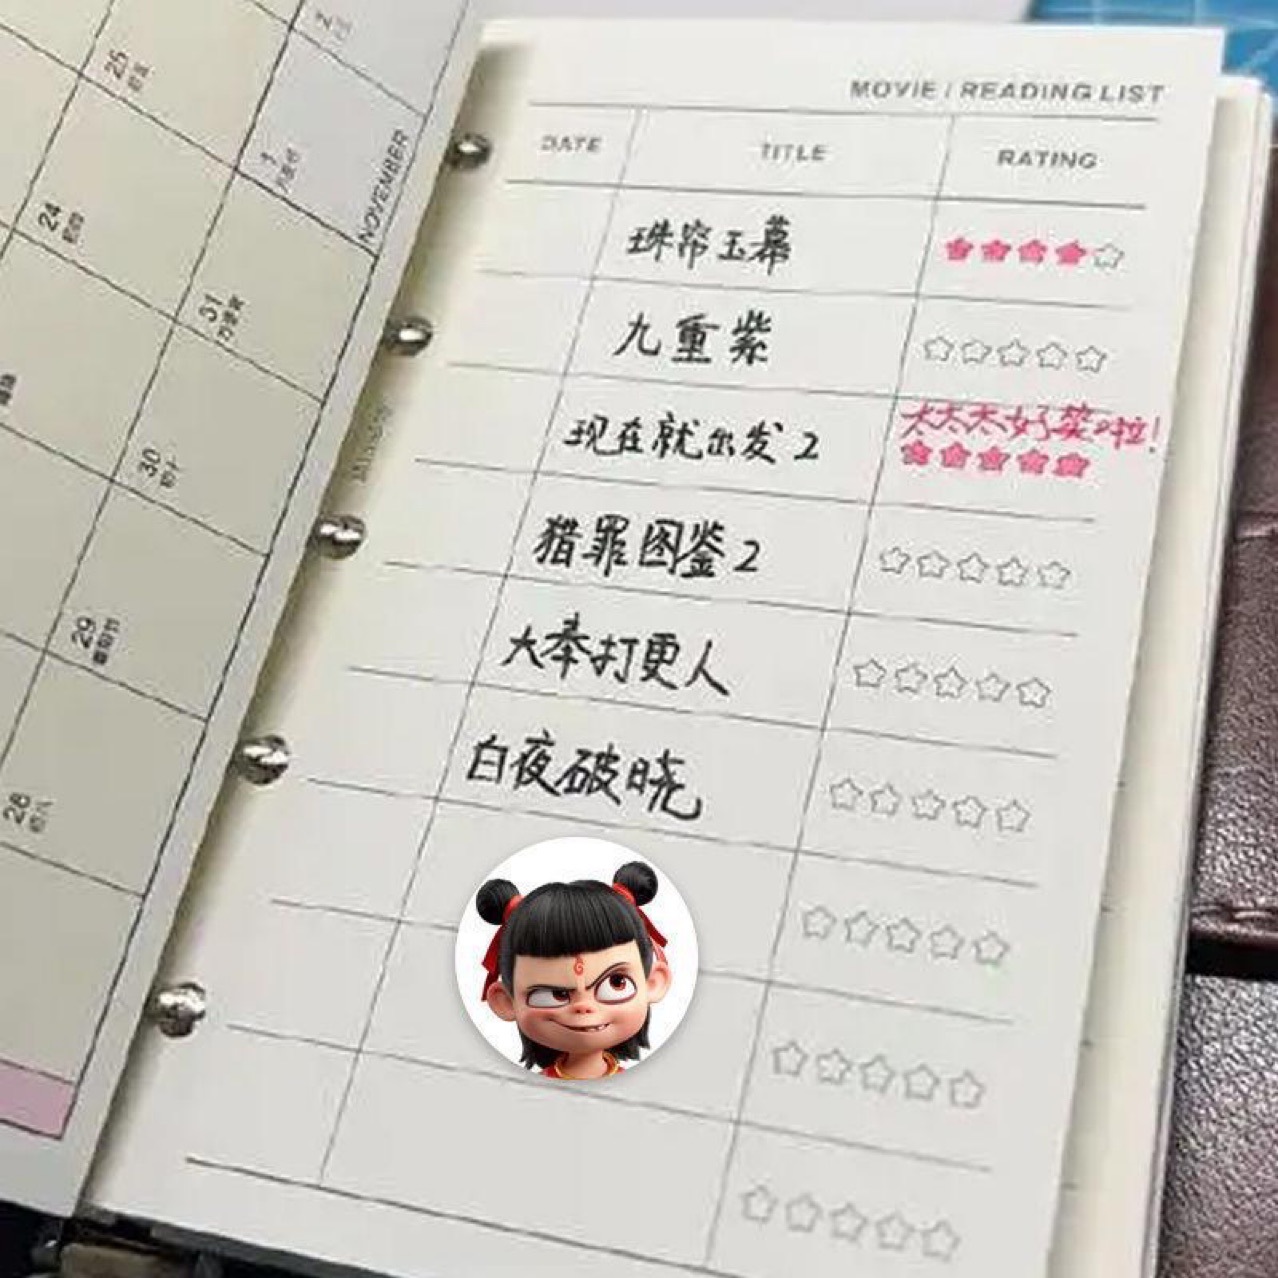 MOVIE / READING LIST
DATE TITLE RATING
珠帘玉幕
九重紫
太太太好笑啦!
现在就出发2
猎罪图鉴2
大奉打更人
白夜破晓
NOVEMBER
25
2
24
1
31
30
29
28